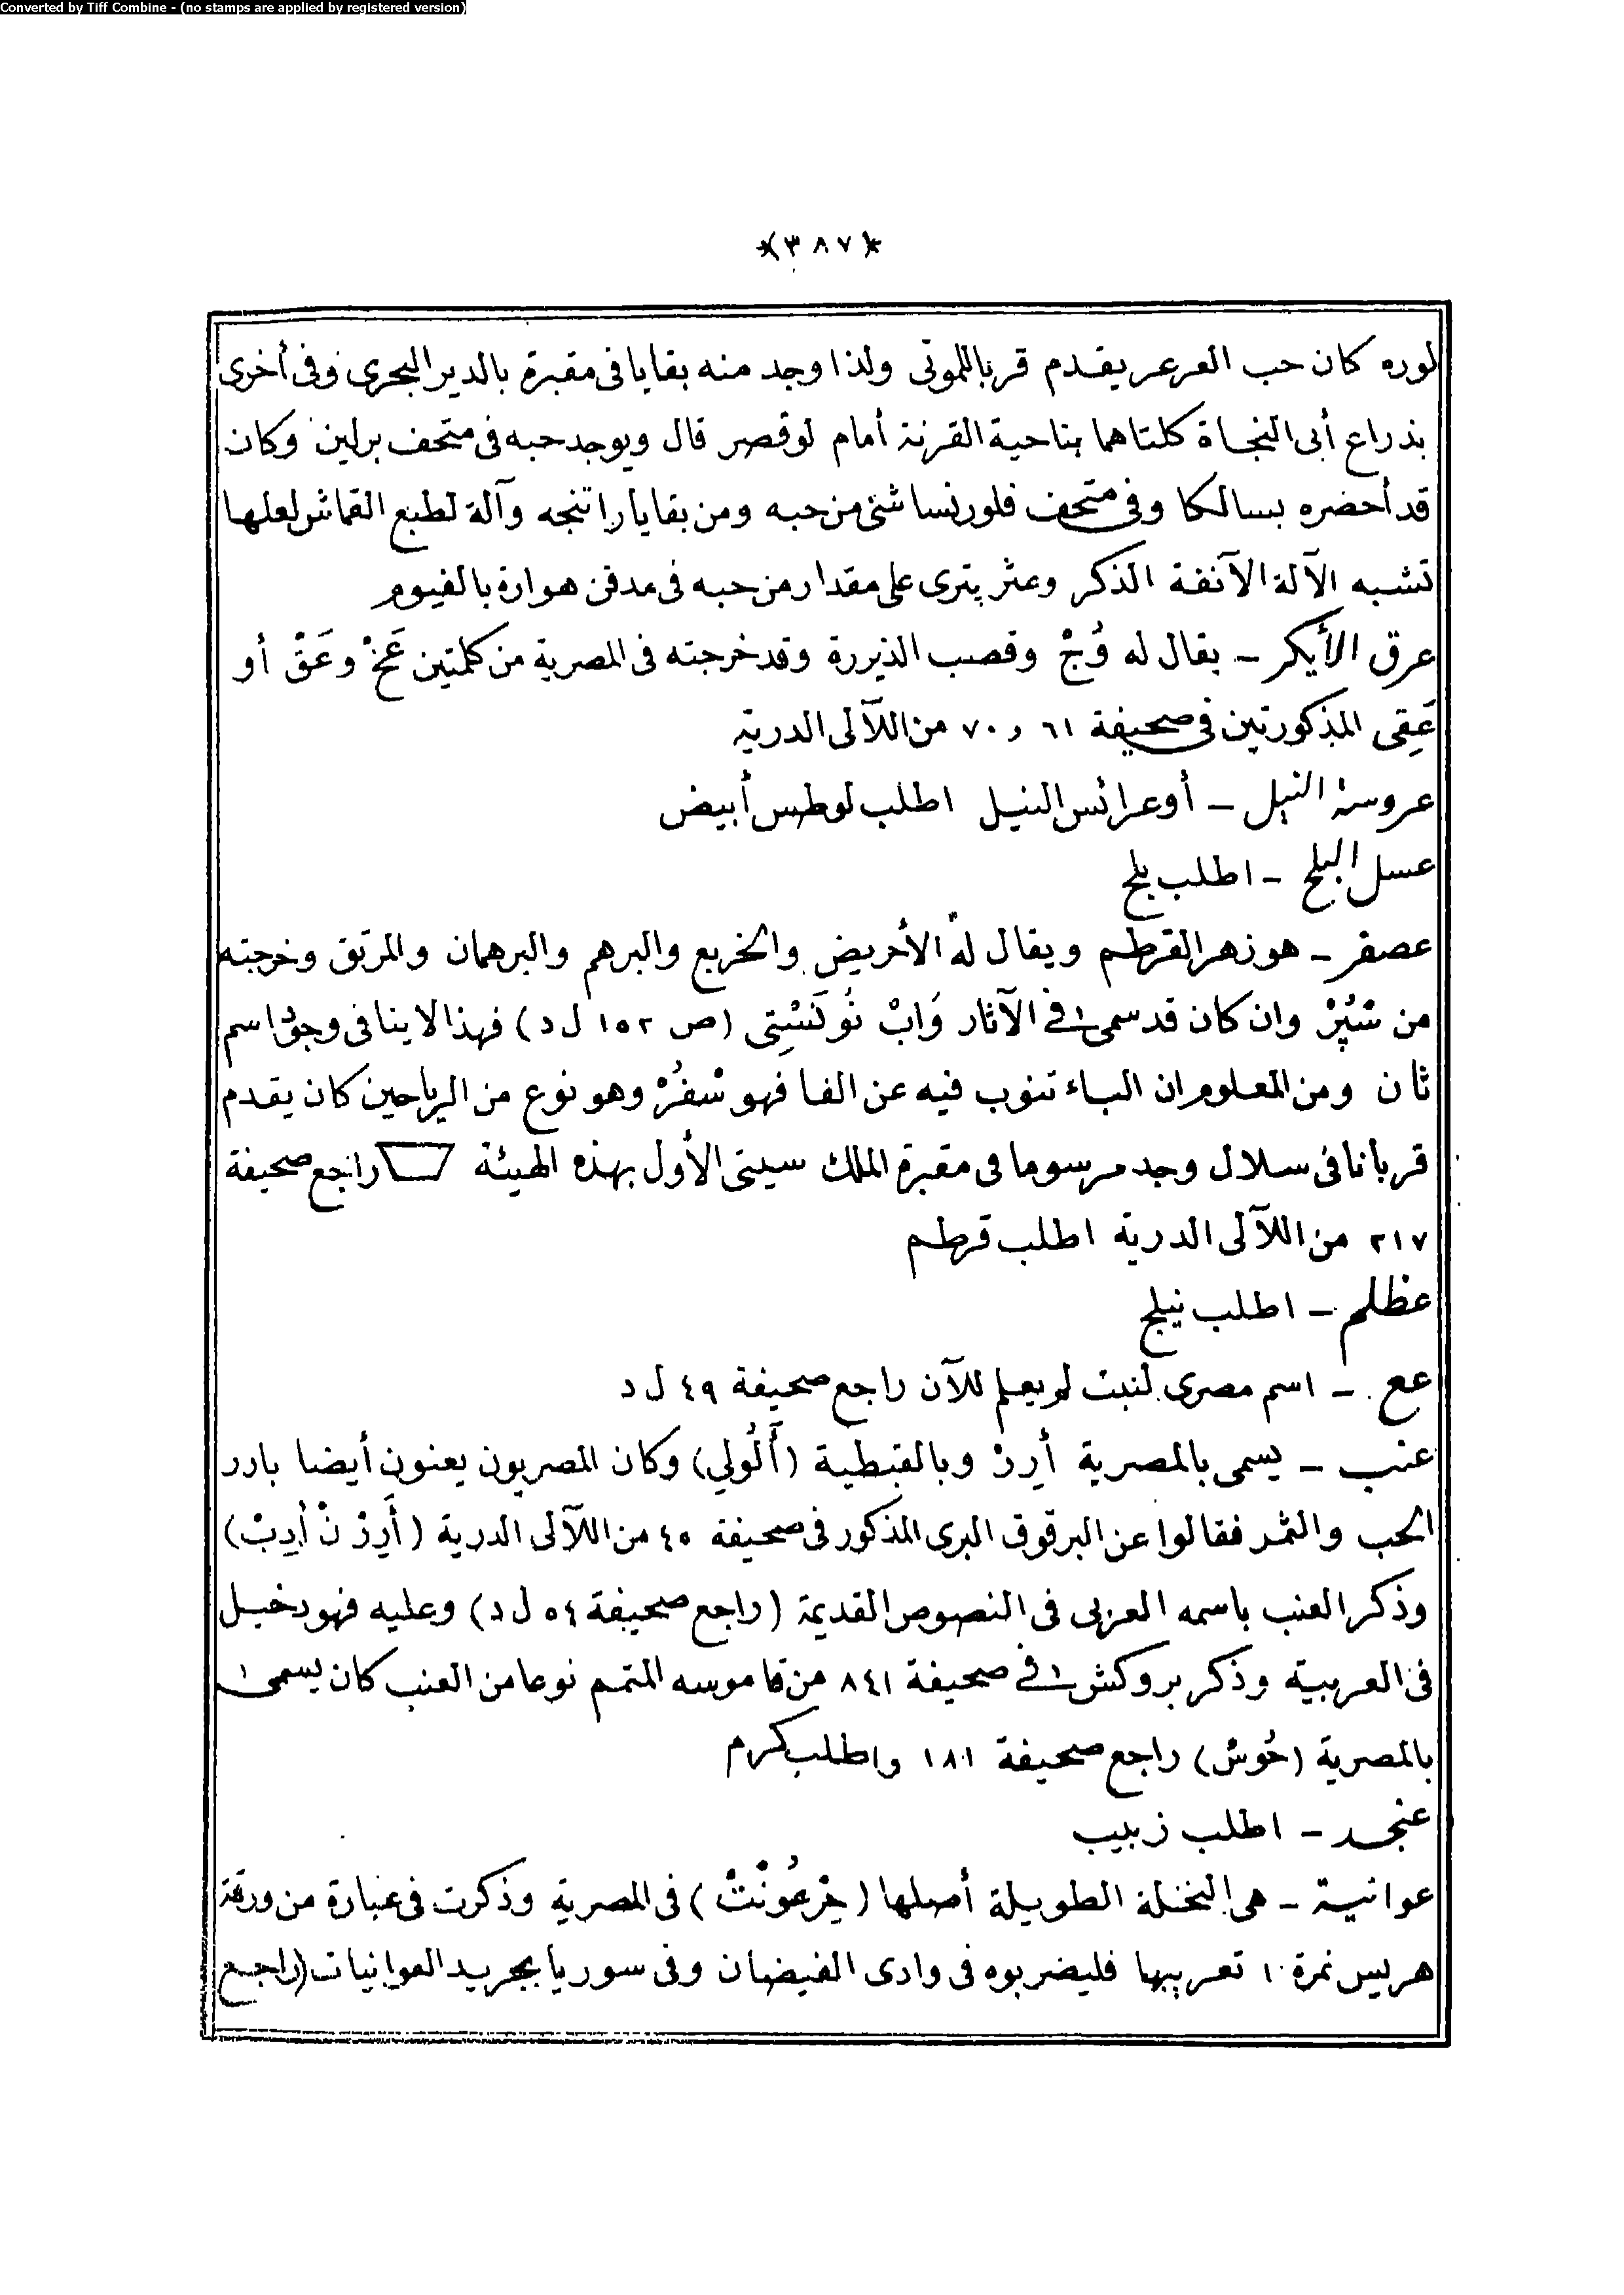 Converted by Tiff Combine - (no stamps are applied by registered version)
*(٣٨٧)*
لوره كان حب العرعر يقدم قربا للموتى ولذا وجد منه بقايا فى مقبرة بالدير البحرى وفى أخرى
بذراع أبى النجاة كلتاهما بناحية القرنة أمام لوقصر قال ويوجد حبه فى متحف برلين وكان
قد أحضره بسالكا وفى متحف فلورنسا شئ من حبه ومن بقايا راتنجه وآلة لطبع القماش لعلها
تشبه الآلة الآنفة الذكر وعثر پترى على مقدار من حبه فى مدفن هوارة بالفيوم
عرق الأيكر - يقال له وُجْ وقصب الذيررة وقد خرجته فى المصرية من كلمتين عَخْ وعَقْ أو
عَقِى المذكورتين فى صحيفة ٦١ و ٧٠ من اللآلى الدرية
عروسة النيل - أو عرائس النيل اطلب لوطس أبيض
عسل البلح - اطلب بلح
عصفر - هو زهر القرطم ويقال له الأحريض والخريع والبرهم والبرهمان والمرتق وخرجته
من سْپُرْ وان كان قد سمى فى الآثار وَابْ نُوكَسْتِى (ص ١٥٢ ل د) فهذا لا ينافى وجود اسم
ثان ومن المعلوم ان الباء تنوب فيه عن الفا فهو سْفُرْ وهو نوع من الرياحين كان يقدم
قربانا فى سلال وجد مرسوما فى مقبرة الملك سيتى الأول بهذه الهيئة راجع صحيفة
٢١٧ من اللآلى الدرية اطلب قرطم
عظلم - اطلب نيلج
عع - اسم مصرى لنبت لم يعلم للآن راجع صحيفة ٤٩ ل د
عنب - يسمى بالمصرية أَرِرْ وبالقبطية (أَلُولِي) وكان المصريون يعنون أيضا بارر
الحب والثمر فقالوا عن البرقوق البرى المذكور فى صحيفة ٤٥ من اللآلى الدرية (أَرِرْ نْ أُدِبْ)
وذكر العنب باسمه العربى فى النصوص القديمة (راجع صحيفة ٥٤ ل د) وعليه فهو دخيل
فى العربية وذكر بروكش فى صحيفة ٨٤١ من قاموسه المتمم نوعا من العنب كان يسمى
بالمصرية (حُوش) راجع صحيفة ١٨١ واطلب كرم
عنجد - اطلب زبيب
عوانية - هى النخلة الطويلة أصلها (خِرْعُونْتْ) فى المصرية وذكرت فى عبارة من ورقة
هريس نمرة ١ تعريبها فليضربوه فى وادى الفيضان وفى سوريا بجريد العوانيات (راجع